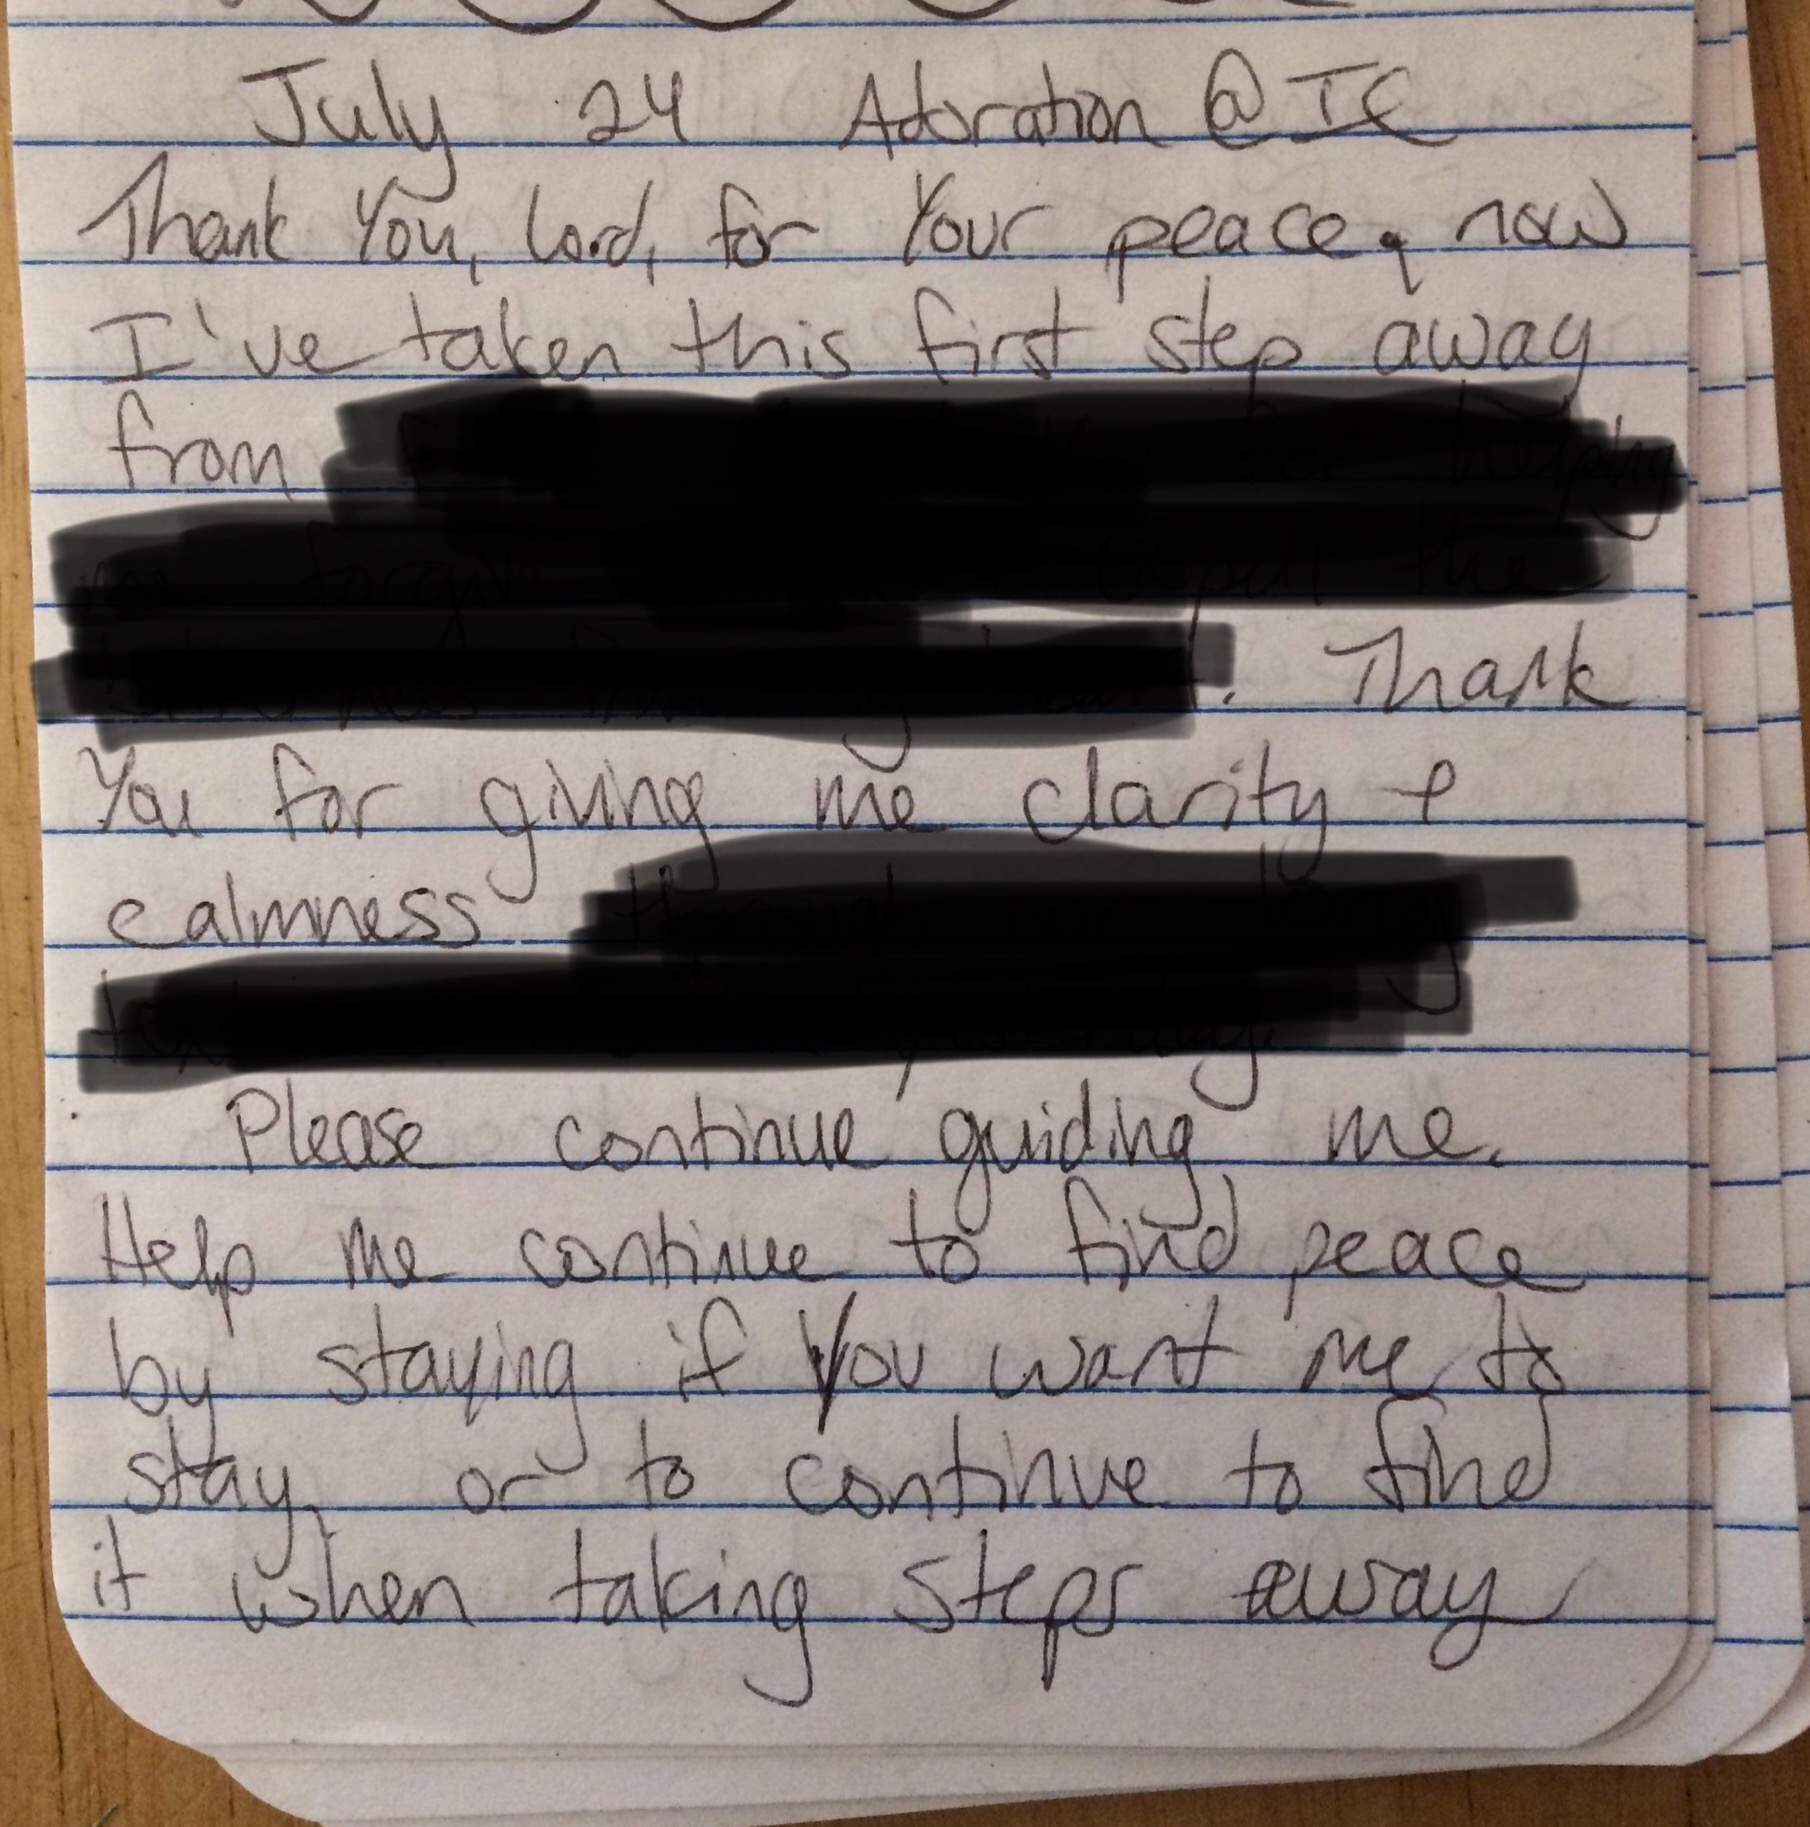 July 24 Adoration @ IC
Thank You, Lord, for Your peace, now
I've taken this first step away
from
. Thank
You for giving me clarity +
calmness
Please continue guiding me.
Help me continue to find peace
by staying if You want me to
stay, or to continue to find
it when taking steps away